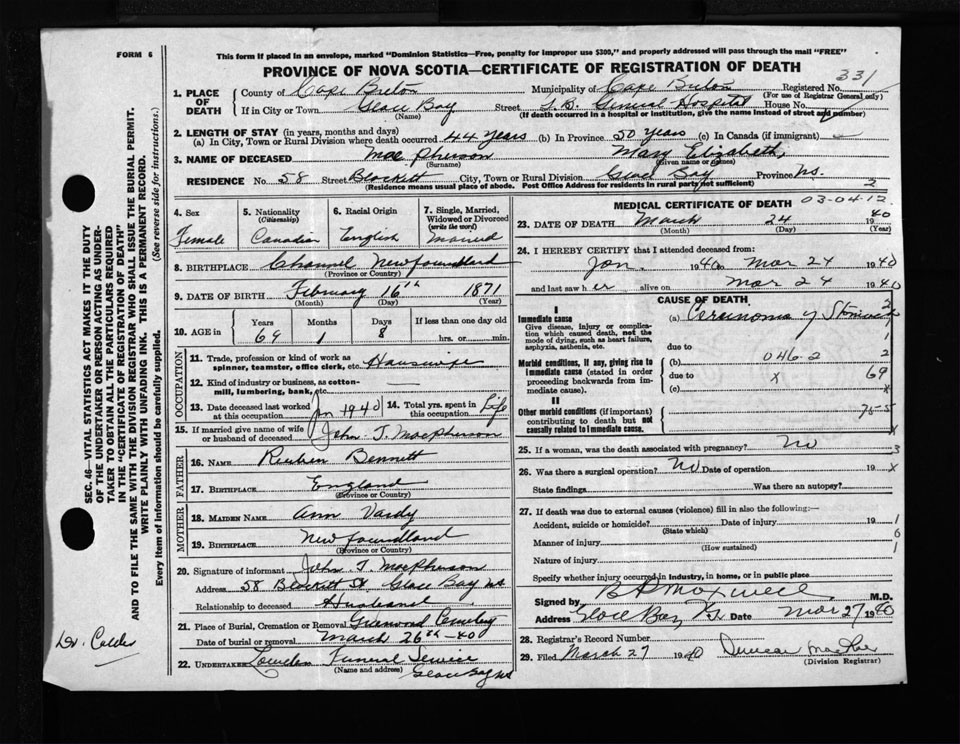 FORM 6
This form if placed in an envelope, marked "Dominion Statistics—Free, penalty for improper use $300," and properly addressed will pass through the mail "FREE"
PROVINCE OF NOVA SCOTIA—CERTIFICATE OF REGISTRATION OF DEATH
331
1. PLACE OF DEATH County of Cape Breton Municipality of Cape Breton Registered No.
(For use of Registrar General only)
If in City or Town Glace Bay Street General Hospital House No.
(Name) (If death occurred in a hospital or institution, give the name instead of street and number)
2. LENGTH OF STAY (in years, months and days)
(a) In City, Town or Rural Division where death occurred 44 years (b) In Province 50 years (c) In Canada (if immigrant)
3. NAME OF DECEASED MacPherson Mary Elizabeth,
(Surname) (Given name or names)
RESIDENCE No. 58 Street Blockett City, Town or Rural Division Glace Bay Province N.S.
(Residence means usual place of abode. Post Office Address for residents in rural parts not sufficient) 2
4. Sex Female
5. Nationality (Citizenship) Canadian
6. Racial Origin English
7. Single, Married, Widowed or Divorced (write the word) Married
8. BIRTHPLACE Channel Newfoundland
(Province or Country)
9. DATE OF BIRTH February 16th 1871
(Month) (Day) (Year)
10. AGE in Years 69 Months 1 Days 8 If less than one day old hrs. or min.
OCCUPATION
11. Trade, profession or kind of work as spinner, teamster, office clerk, etc. Housewife
12. Kind of industry or business, as cotton-mill, lumbering, bank, etc. —
13. Date deceased last worked at this occupation Jan 1940
14. Total yrs. spent in this occupation Life
15. If married give name of wife or husband of deceased John T. MacPherson
FATHER
16. NAME Reuben Bennett
17. BIRTHPLACE England
(Province or Country)
MOTHER
18. MAIDEN NAME Ann Vardy
19. BIRTHPLACE Newfoundland
(Province or Country)
20. Signature of informant John T. MacPherson
Address 58 Blockett St Glace Bay NS
Relationship to deceased Husband
21. Place of Burial, Cremation or Removal Greenwood Cemetery
Date of burial or removal March 26th -40
22. UNDERTAKER Funeral Service
(Name and address) Glace Bay NS
MEDICAL CERTIFICATE OF DEATH 03-04-12
23. DATE OF DEATH March 24 1940
(Month) (Day) (Year)
24. I HEREBY CERTIFY that I attended deceased from:
Jan. 1940 to Mar 24 1940
and last saw her alive on Mar 24 1940
CAUSE OF DEATH
I
Immediate cause
Give disease, injury or complication which caused death, not the mode of dying, such as heart failure, asphyxia, asthenia, etc.
(a) Carcinoma of Stomach
due to
Morbid conditions, if any, giving rise to immediate cause (stated in order proceeding backwards from immediate cause).
(b) 046-2 2
due to x 69
(c) x
II
Other morbid conditions (if important) contributing to death but not causally related to immediate cause.
75-5
25. If a woman, was the death associated with pregnancy? No 3
26. Was there a surgical operation? No Date of operation 19 x
State findings Was there an autopsy?
27. If death was due to external causes (violence) fill in also the following:—
Accident, suicide or homicide? Date of injury 19 1
(State which) 6
Manner of injury 1
(How sustained)
Nature of injury
Specify whether injury occurred in industry, in home, or in public place
Signed by Maxwell M.D.
Address Glace Bay Date Mar 27 1940
28. Registrar's Record Number
29. Filed March 27 1940 Duncan MacRae
(Division Registrar)
SEC. 46—VITAL STATISTICS ACT MAKES IT THE DUTY
OF THE UNDERTAKER OR PERSON ACTING AS UNDER-
TAKER TO OBTAIN ALL THE PARTICULARS REQUIRED
IN THE "CERTIFICATE OF REGISTRATION OF DEATH"
AND TO FILE THE SAME WITH THE DIVISION REGISTRAR WHO SHALL ISSUE THE BURIAL PERMIT.
WRITE PLAINLY WITH UNFADING INK. THIS IS A PERMANENT RECORD.
Every item of information should be carefully supplied. (See reverse side for instructions.)